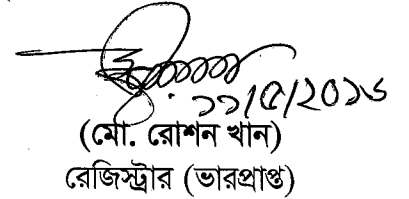 ১১/৫/২০১৬
(মো. রোশন খান)
রেজিস্ট্রার (ভারপ্রাপ্ত)